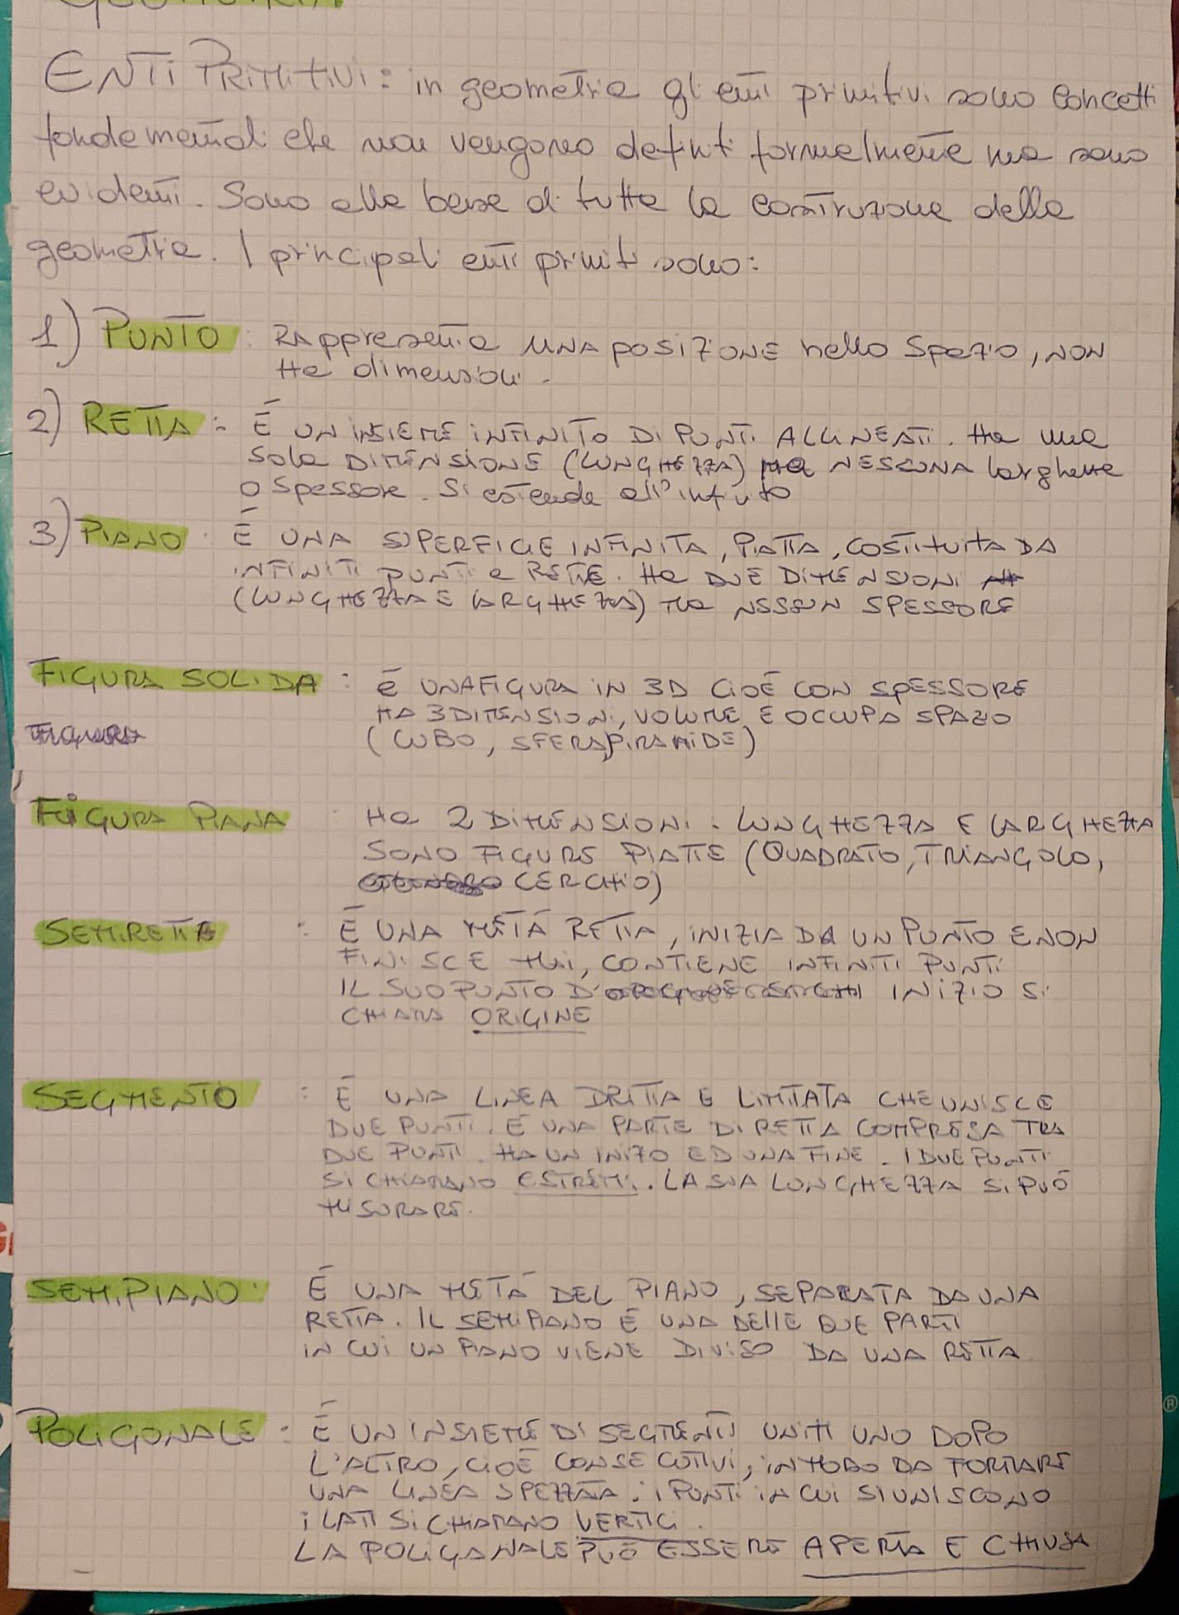 GEOMETRIA
ENTI PRIMITIVI: in geometria gli enti primitivi sono concetti
fondamentali che non vengono definiti formalmente ma sono
evidenti. Sono alla base di tutta la costruzione della
geometria. I principali enti primiti sono:
1) PUNTO: RAppresenta UNA POSIZIONE nello Spazio, NON
Ha dimensioni.
2) RETTA: È UN INSIEME INFINITO DI PUNTI ALLINEATI. Ha una
Sola DIMENSIONE (LUNGHEZZA) MA NESSUNA larghezza
O Spessore. Si estende all'infinito
3) PIANO: È UNA SUPERFICIE INFINITA, PIATTA, COSTITUITA DA
INFINITI PUNTI e RETTE. Ha DUE DIMENSIONI
(LUNGHEZZA E LARGHEZZA) MA NESSUN SPESSORE
FIGURA SOLIDA: è UNA FIGURA IN 3D CIOÈ CON SPESSORE
HA 3 DIMENSIONI, VOLUME E OCCUPA SPAZIO
FIGURA (CUBO, SFERA, PIRAMIDE)
FIGURA PIANA: Ha 2 DIMENSIONI. LUNGHEZZA E LARGHEZZA
SONO FIGURE PIATTE (QUADRATO, TRIANGOLO,
CERCHIO)
SEMIRETTA: È UNA METÀ RETTA, INIZIA DA UN PUNTO E NON
FINISCE MAI, CONTIENE INFINITI PUNTI
IL SUO PUNTO D' INIZIO SI
CHIAMA ORIGINE
SEGMENTO: È UNA LINEA DRITTA E LIMITATA CHE UNISCE
DUE PUNTI. È UNA PARTE DI RETTA COMPRESA TRA
DUE PUNTI. HA UN INIZO ED UNA FINE. I DUE PUNTI
SI CHIAMANO ESTREMI. LA SUA LUNGHEZZA SI PUÒ
MISURARE.
SEMIPIANO: È UNA METÀ DEL PIANO, SEPARATA DA UNA
RETTA. IL SEMIPIANO È UNA DELLE DUE PARTI
IN CUI UN PIANO VIENE DIVISO DA UNA RETTA
POLIGONALE: È UN INSIEME DI SEGMENTI UNITI UNO DOPO
L'ALTRO, CIOÈ CONSECUTIVI, IN MODO DA FORMARE
UNA LINEA SPEZZATA. I PUNTI IN CUI SI UNISCONO
I LATI SI CHIAMANO VERTICI.
LA POLIGONALE PUÒ ESSERE APERTA E CHIUSA